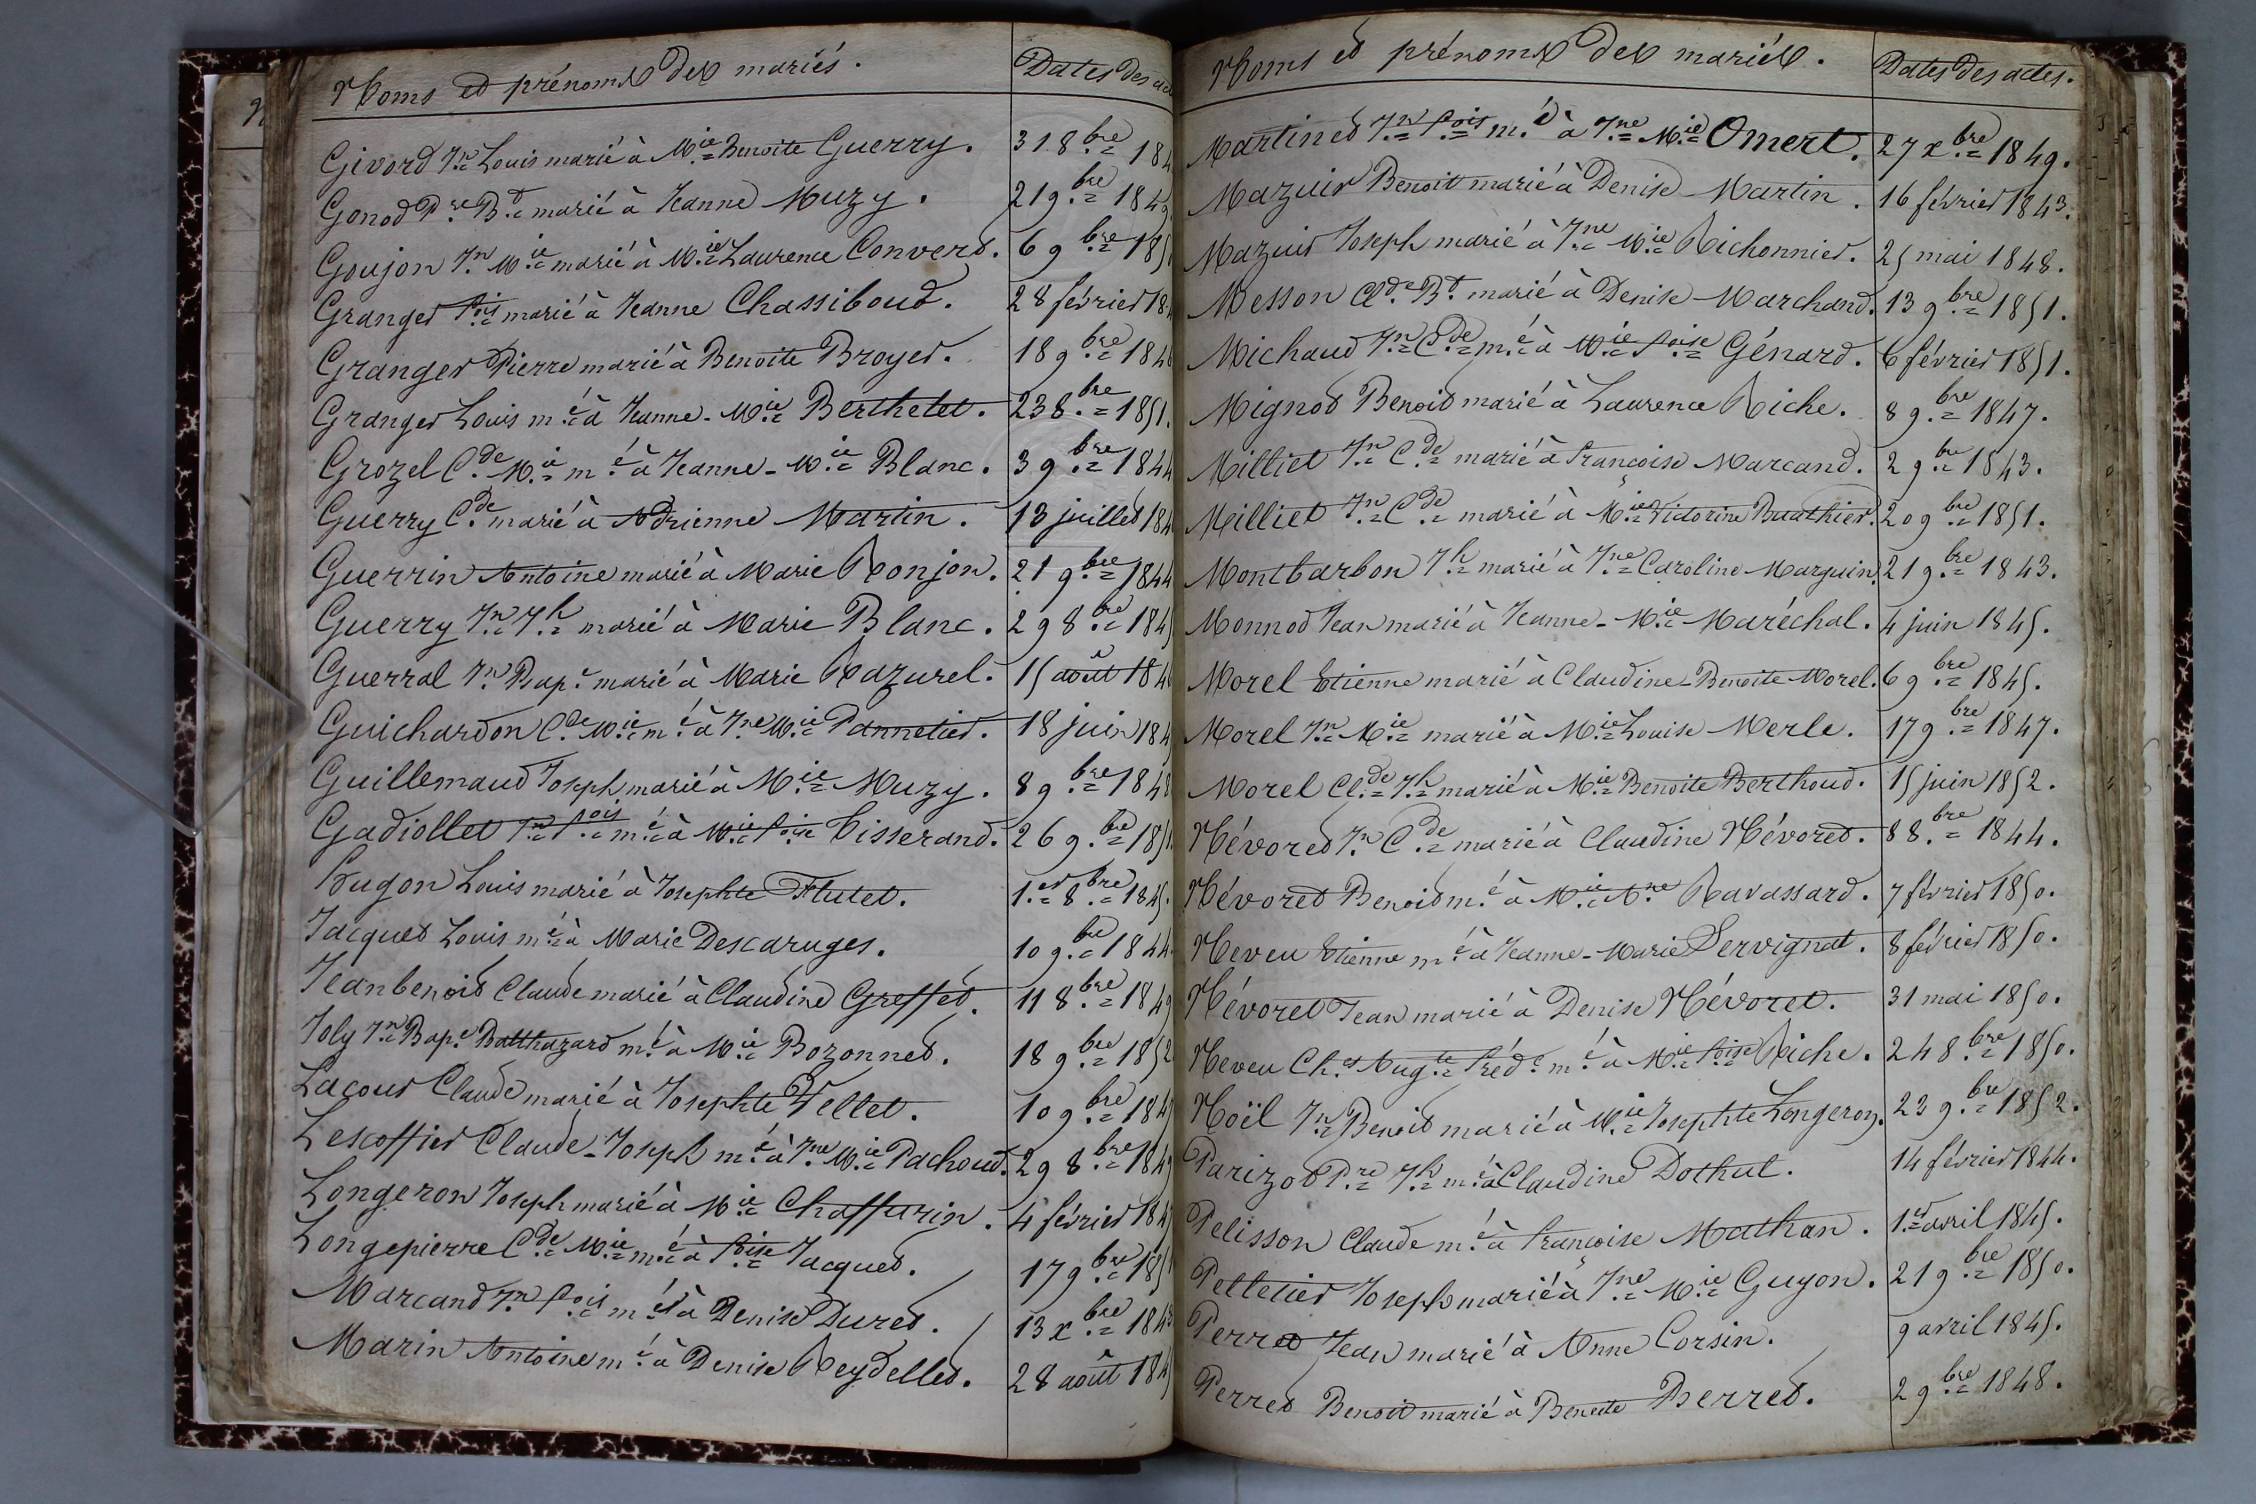 Noms et prénoms des mariés.
Dates des ac
Givord Jn Louis marié à Mie Benoite Guerry. 31 8bre 184
Gonod Pre Bt marié à Jeanne Muzy. 21 9bre 1849
Goujon Jn Mie marié à Mie Laurence Convert. 6 9bre 185
Granger fois marié à Jeanne Chassiboud. 28 février 18
Granger Pierre marié à Benoite Broyer. 18 9bre 184
Granger Louis mé à Jeanne-Mie Berthelet. 23 8bre 1851.
Grozel Cde Mie mé à Jeanne-Mie Blanc. 3 9bre 1844
Guerry Cde marié à Adrienne Martin. 13 juillet 184
Guerrin Antoine marié à Marie Ronjon. 21 9bre 1844
Guerry Jn Jh marié à Marie Blanc. 29 8bre 184
Guerral Jn Bape marié à Marie Razurel. 15 août 184
Guichardon Cde Mie mé à Jne Mie Pannetier. 18 juin 184
Guillemaud Joseph marié à Mie Muzy. 8 9bre 1848
Gadiollet Jn fois mé à Mie foise Tisserand. 26 9bre 185
Hugon Louis marié à Josephte Flutet. 1er 8bre 1845.
Jacquet Louis mé à Marie Descaruges. 10 9bre 1844
Jeanbenoit Claude marié à Claudine Greffet. 11 8bre 1849
Joly Jn Bape Balthazard mé à Mie Bozonnet. 18 9bre 1852
Lacour Claude marié à Josephte Vellet. 10 9bre 184
Lescoffier Claude-Joseph mé à Jne Mie Pachoud. 29 8bre 184
Longeron Joseph marié à Mie Chaffurin. 4 février 184
Longepierre Cde Mie mé à foise Jacquet. 17 9bre 185
Marcand Jn fois mé à Denise Duret. 13 xbre 184
Marin Antoine mé à Denise Reydellet. 28 août 184
Noms et prénoms des mariés.
Dates des actes.
Martinet Jn fois m.é à Jne Mie Omert. 27 xbre 1849.
Mazuir Benoit marié à Denise Martin. 16 février 1843.
Mazuir Joseph marié à Jne Mie Richonnier. 25 mai 1848.
Messon Clde Bt marié à Denise Marchand. 13 9bre 1851.
Michaud Jn Cde mé à Mie foise Génard. 6 février 1851.
Mignot Benoit marié à Laurence Riche. 8 9bre 1847.
Milliet Jn Cde marié à françoise Marcand. 2 9bre 1843.
Milliet Jn Cde marié à Mie Victorine Buathier. 20 9bre 1851.
Montbarbon Jh marié à Jne Caroline Marguin. 21 9bre 1843.
Monnod Jean marié à Jeanne-Mie Maréchal. 4 juin 1845.
Morel Etienne marié à Claudine-Benoite Morel. 6 9bre 1845.
Morel Jn Mie marié à Mie Louise Merle. 17 9bre 1847.
Morel Clde Jh marié à Mie Benoite Berthoud. 15 juin 1852.
Névoret Jn Cde marié à Claudine Névoret. 8 8bre 1844.
Névoret Benoit mé à Mie Ane Ravassard. 7 février 1850.
Neveu Etienne mé à Jeanne-Marie Servignat. 8 février 1850.
Névoret Jean marié à Denise Névoret. 31 mai 1850.
Neveu Ches Augte fréde mé à Mie foise Riche. 24 8bre 1850.
Noïl Jn Benoit marié à Mie Josephte Longeron. 23 9bre 1852.
Parizot Pre Jh mé à Claudine Dothal. 14 février 1844.
Pelisson Claude mé à françoise Mathan. 1er avril 1845.
Pelletier Joseph marié à Jne Mie Guyon. 21 9bre 1850.
Perret Jean marié à Anne Corsin. 9 avril 1845.
Perret Benoit marié à Benoite Perret. 2 9bre 1848.